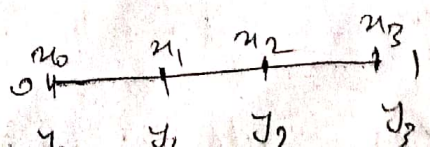 x₀ x₁ x₂ x₃
0 1
y₀ y₁ y₂ y₃